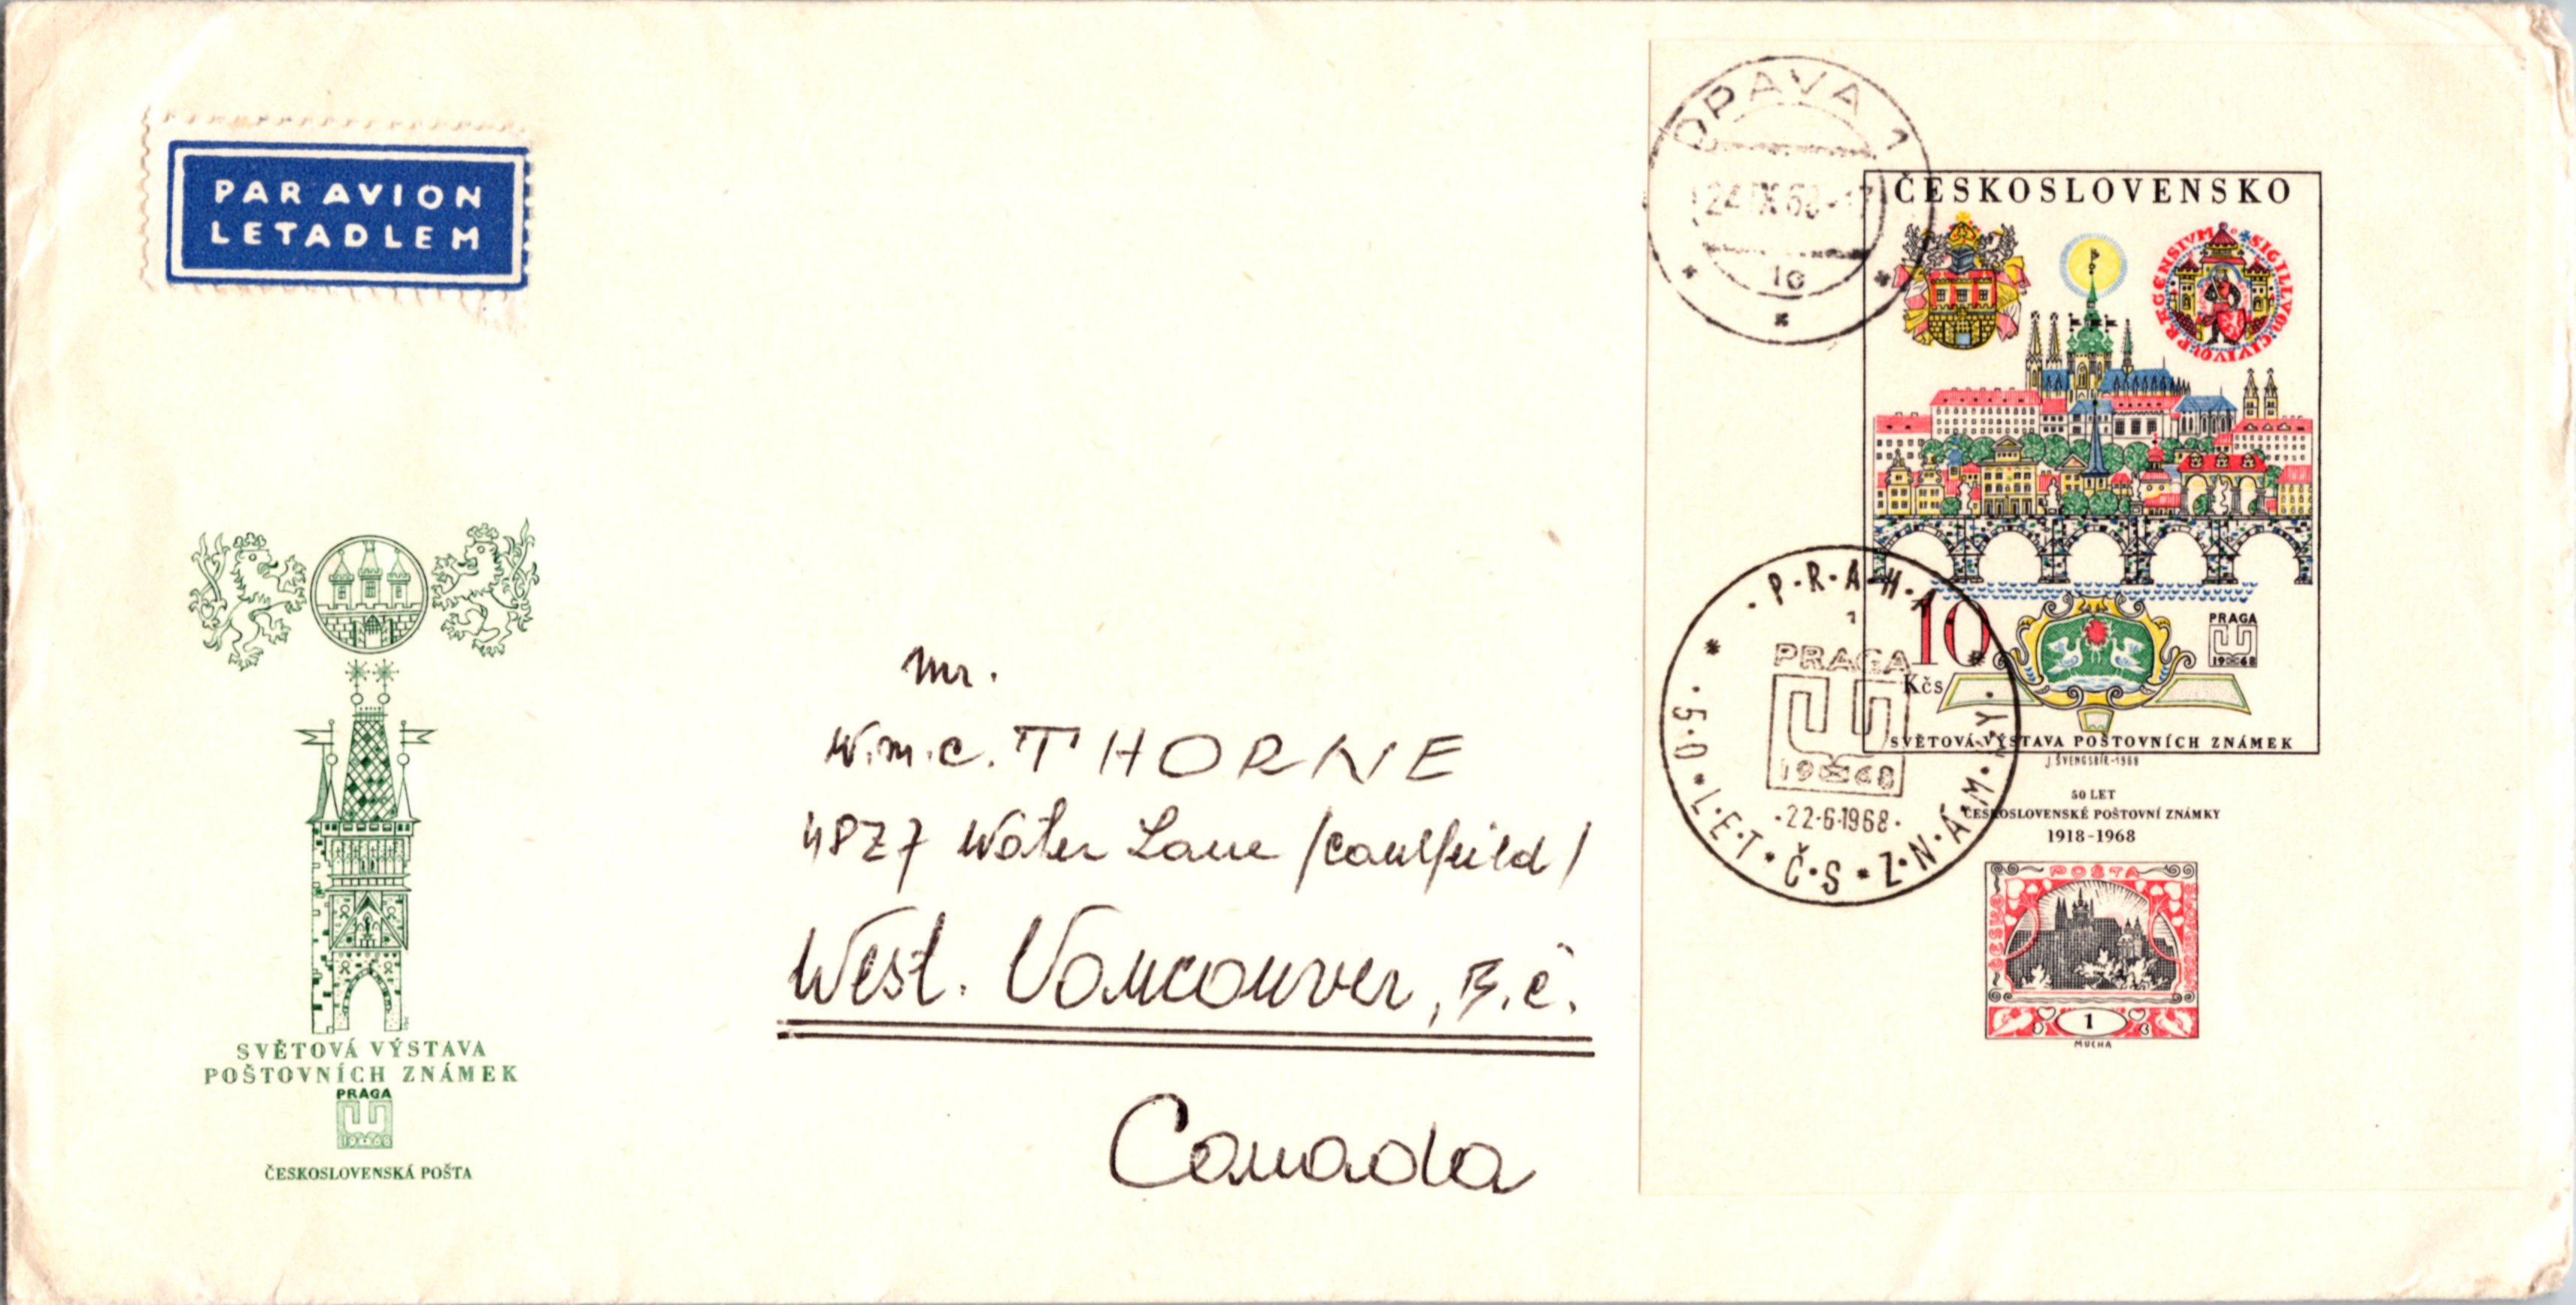 PAR AVION
LETADLEM
OPAVA 1
24.IX.68-17
1c
ČESKOSLOVENSKO
SIGILLVM CIVIVM PRAGENSIVM
10
Kčs
PRAGA
1968
SVĚTOVÁ VÝSTAVA POŠTOVNÍCH ZNÁMEK
J. ŠVENGSBÍR-1968
50 LET
ČESKOSLOVENSKÉ POŠTOVNÍ ZNÁMKY
1918-1968
POŠTA
ČESKO
SLOVENSKÁ
1
MUCHA
·P·R·A·H·A·
1
PRAGA
1968
·22·6·1968·
·5·0·L·E·T·Č·S·Z·N·Á·M·K·Y·
Mr.
W.M.C. THORNE
4827 Water Lane /Caulfeild/
West. Vancouver, B.C.
Canada
SVĚTOVÁ VÝSTAVA
POŠTOVNÍCH ZNÁMEK
PRAGA
1968
ČESKOSLOVENSKÁ POŠTA